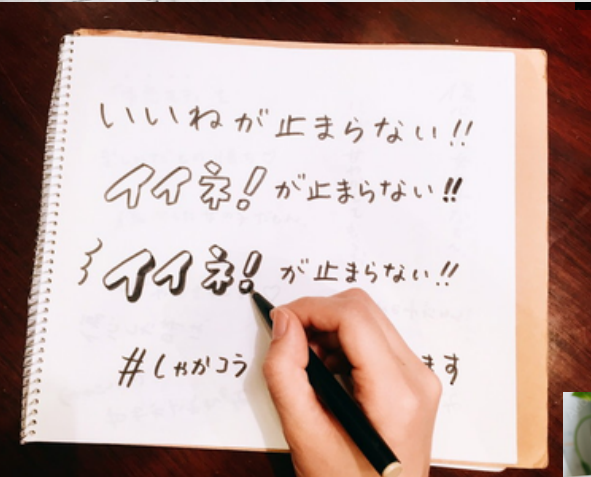 いいねが止まらない!!
イイネ!が止まらない!!
イイネ!が止まらない!!
#しゃかコラ ます